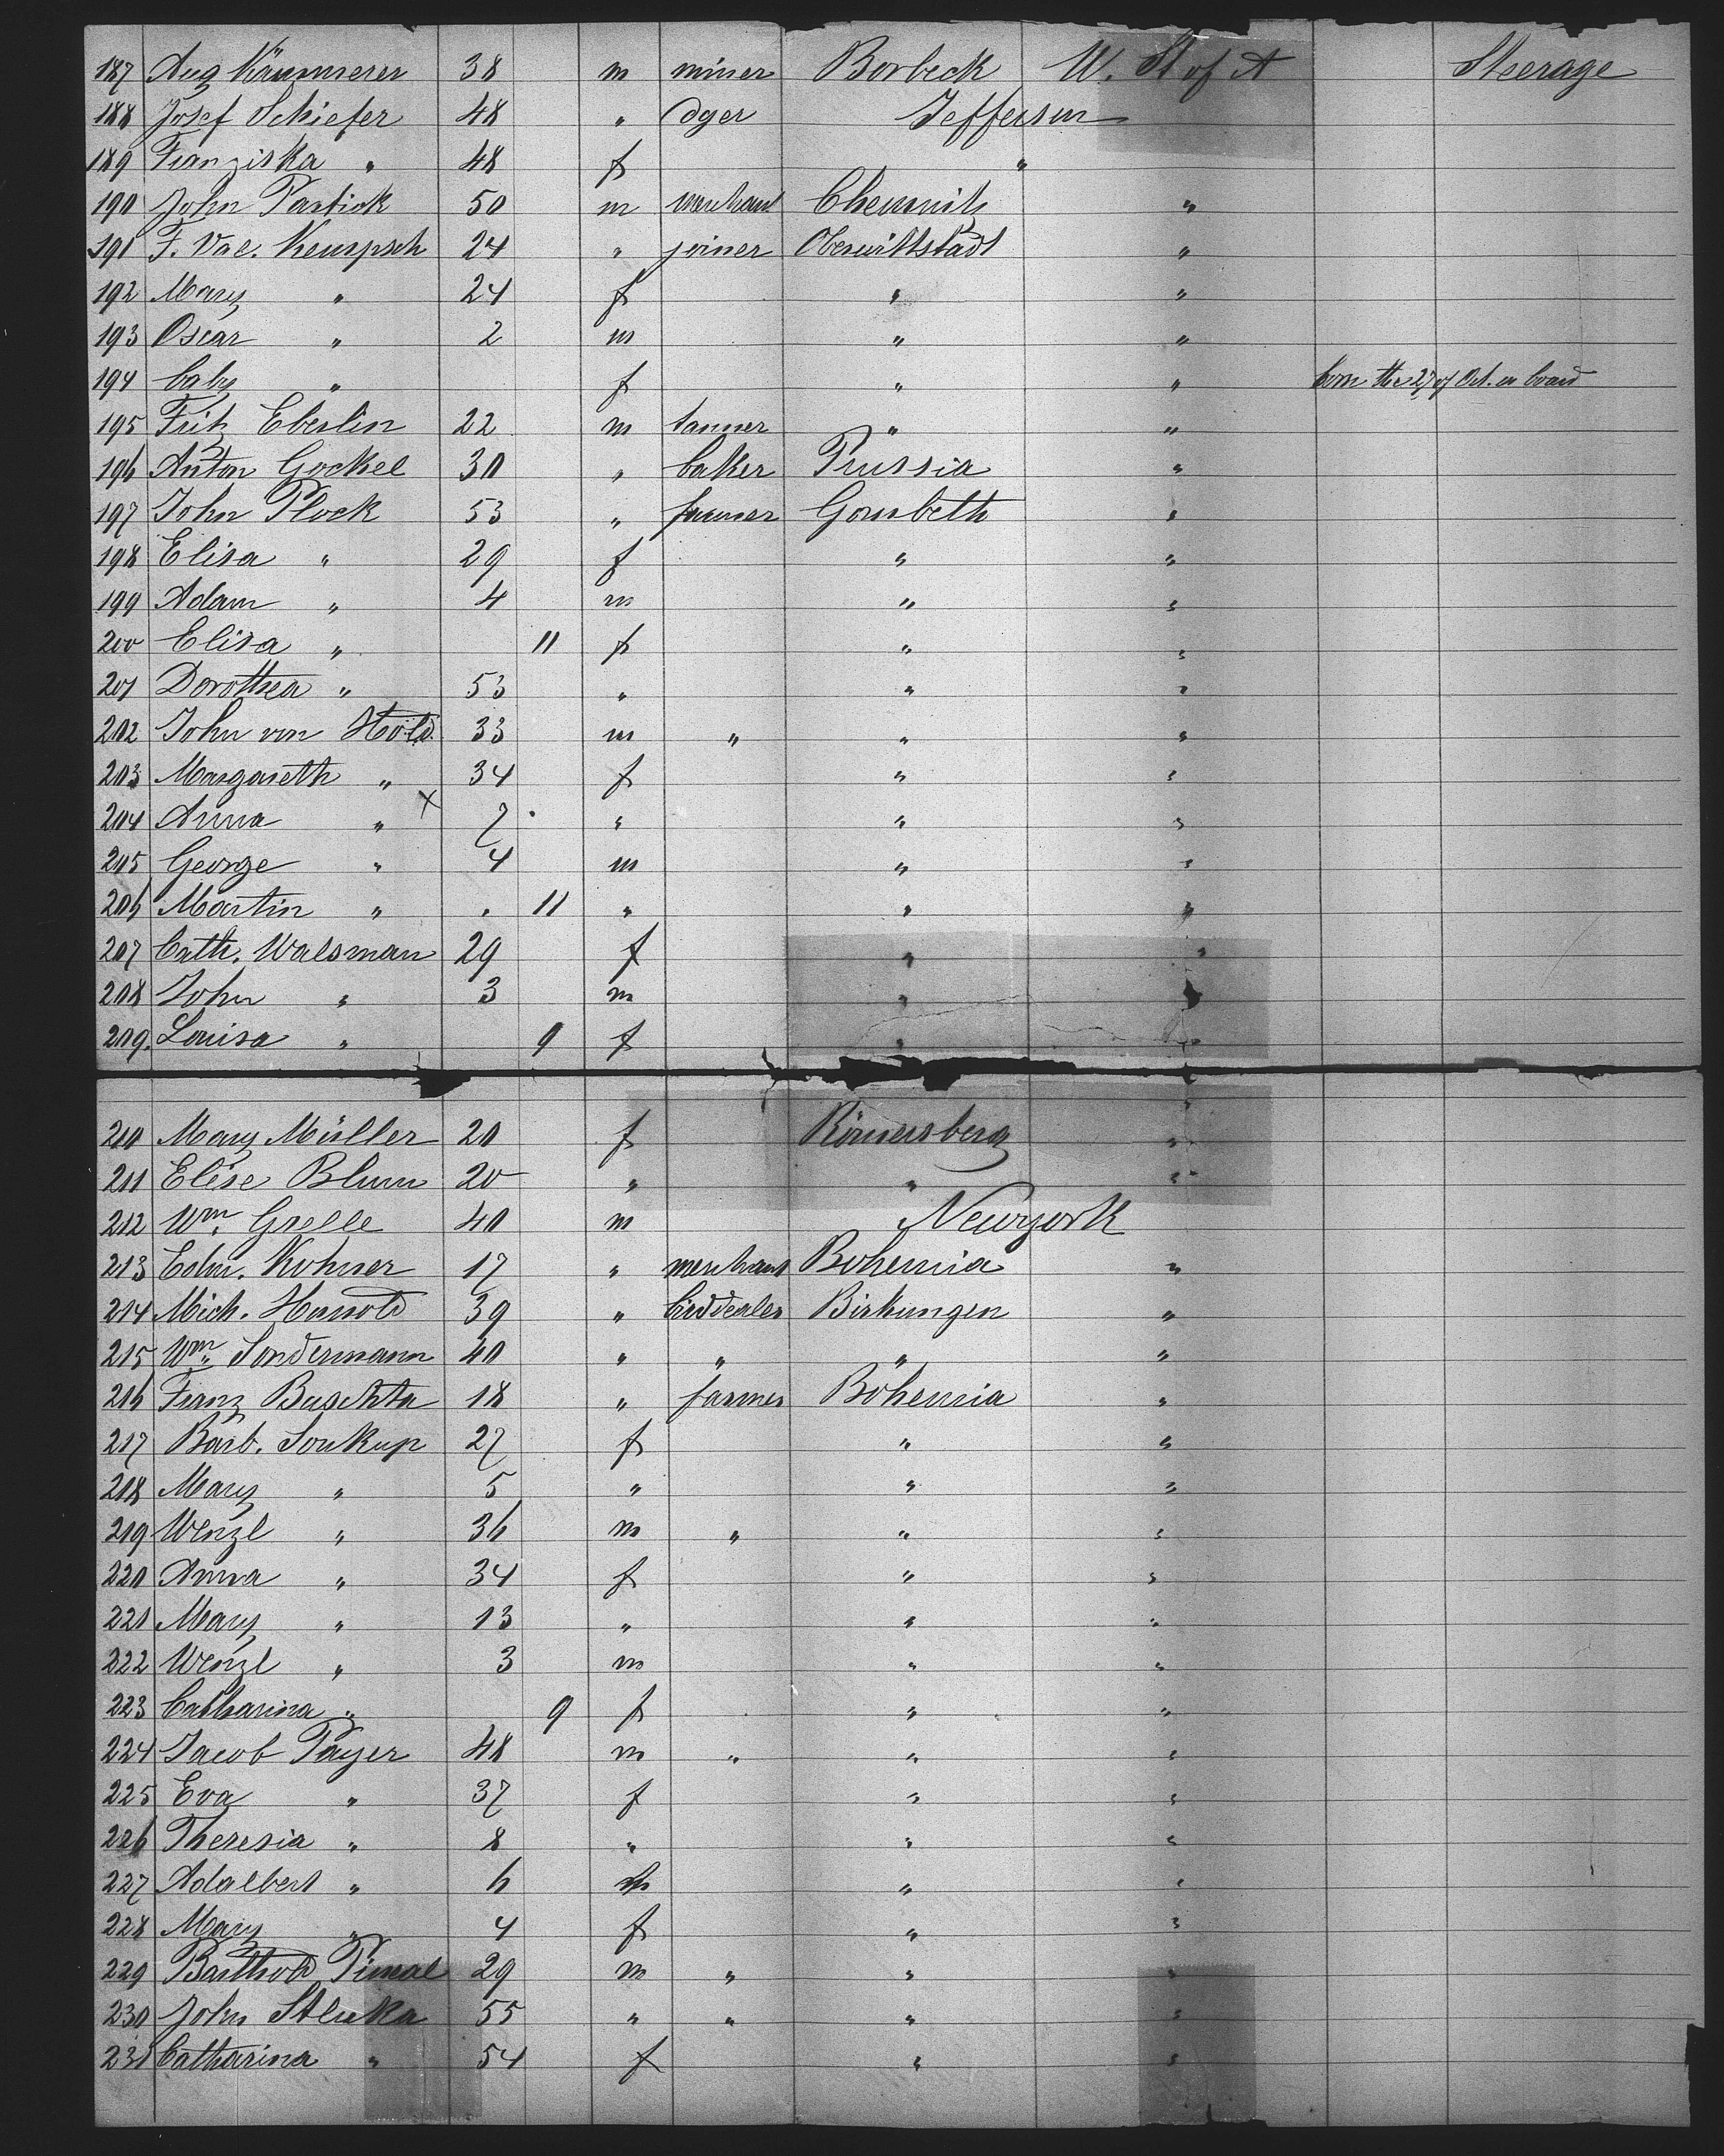 187 Aug Kämmerer 38 m miner Borbeck U. St of A Steerage
188 Josef Schiefer 48 " Jefferson
189 Franziska " 48 f "
190 John Partick 50 m merchant Chemnitz "
191 F. Val. Kempsch 24 " joiner Oberwittstadt "
192 Mary " 24 f " "
193 Oscar " 2 m " "
194 baby " f " " born the 27 of Oct. on board
195 Fritz Eberlin 22 m tanner " "
196 Anton Gockel 30 " baker Prussia "
197 John Plock 53 " farmer Gombeth "
198 Elisa " 29 f " "
199 Adam " 4 m " "
200 Elisa " 11 f " "
201 Dorothea " 53 " " "
202 John von Hold 33 m " " "
203 Margareth " 34 f " "
204 Anna " x 7 . " " "
205 George " 4 m " "
206 Martin " . 11 " " "
207 Cath. Walsman 29 f " "
208 John " 3 m " "
209. Louisa " 9 f " "
210 Mary Müller 20 f Römersberg "
211 Elise Blum 20 " " "
212 Wm. Grelle 40 m Newyork
213 Edm. Kohner 17 " merchant Bohemia "
214 Mich. Harnold 39 " birddealer Birkungen "
215 Wm. Sondermann 40 " " " "
216 Franz Buschta 18 " farmer Bohemia "
217 Barb. Soukup 27 f " "
218 Mary " 5 " " "
219 Wenzl " 36 m " " "
220 Anna " 34 f " "
221 Mary " 13 " " "
222 Wenzl " 3 m " "
223 Catharina " 9 f " "
224 Jacob Payer 48 m " " "
225 Eva " 37 f " "
226 Theresia " 8 " " "
227 Adalbert " 6 m " "
228 Mary " 4 f " "
229 Barthold 29 m " " "
230 John Stluka 55 " " " "
231 Catharina " 54 f " "